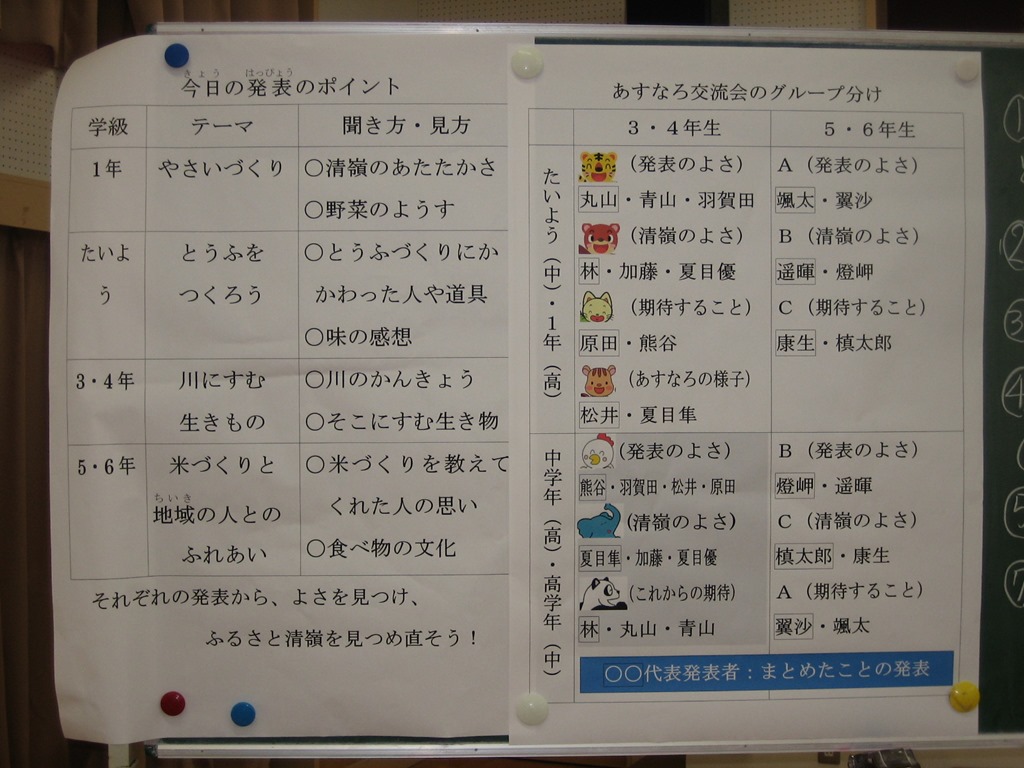 きょう はっぴょう
今日の発表のポイント
学級 テーマ 聞き方・見方
1年 やさいづくり ○清嶺のあたたかさ
○野菜のようす
たいよ とうふを ○とうふづくりにか
う つくろう かわった人や道具
○味の感想
3・4年 川にすむ ○川のかんきょう
生きもの ○そこにすむ生き物
5・6年 米づくりと ○米づくりを教えて
ちいき
地域の人との くれた人の思い
ふれあい ○食べ物の文化
それぞれの発表から、よさを見つけ、
ふるさと清嶺を見つめ直そう！
あすなろ交流会のグループ分け
3・4年生 5・6年生
たいよう（中）・1年（高）
（発表のよさ） A（発表のよさ）
丸山・青山・羽賀田 颯太・翼沙
（清嶺のよさ） B（清嶺のよさ）
林・加藤・夏目優 遥暉・燈岬
（期待すること） C（期待すること）
原田・熊谷 康生・槙太郎
（あすなろの様子）
松井・夏目隼
中学年（高）・高学年（中）
（発表のよさ） B（発表のよさ）
熊谷・羽賀田・松井・原田 燈岬・遥暉
（清嶺のよさ） C（清嶺のよさ）
夏目隼・加藤・夏目優 槙太郎・康生
（これからの期待） A（期待すること）
林・丸山・青山 翼沙・颯太
○○代表発表者：まとめたことの発表
①
②
③
④
⑤
⑦